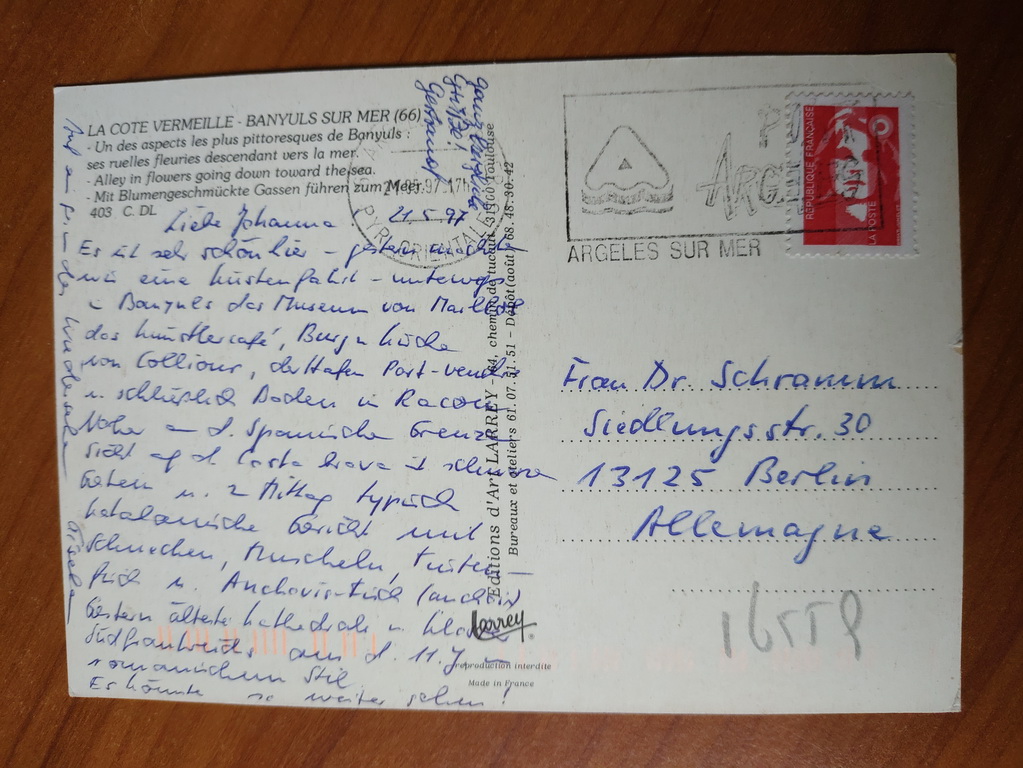 LA COTE VERMEILLE - BANYULS SUR MER (66)
- Un des aspects les plus pittoresques de Banyuls :
ses ruelles fleuries descendant vers la mer.
- Alley in flowers going down toward the sea.
- Mit Blumengeschmückte Gassen führen zum Meer.
403 C. DL
ganz herzliche
Grüße!
21.5.97
Liebe Johanna
Es ist sehr schön hier - gestern machten
wir eine Küstenfahrt - unterwegs
in Banyuls das Museum von Maillol
das Künstlercafé, Burg u Kirche
von Collioure, der Hafen Port-vendre
u. schließlich Baden in Racou
Nähe an d. Spanischen Grenze
Sicht auf d. Costa brava
gestern u. zu Mittag typisch
katalanische Gericht mit
Schnecken, Muscheln, Tinten-
fisch u. Anchovis-Fisch
Gestern älteste Kathedrale u.
Südfrankreichs aus d. 11. J. im
romanischen Stil
Es könnte so weiter gehen!
Auf ein Wiedersehen
Gisela
Editions d'Art LARREY - 64, chemin de tucaut, 31100 Toulouse
Bureaux et ateliers 61.07.51.51 - Dépôt (août) 68.48.30.42
Larrey
reproduction interdite
Made in France
97 17h
PYR. ORIENTALES
ARGELES SUR MER
REPUBLIQUE FRANÇAISE
LA POSTE
Frau Dr. Schramm
Siedlungsstr. 30
13125 Berlin
Allemagne